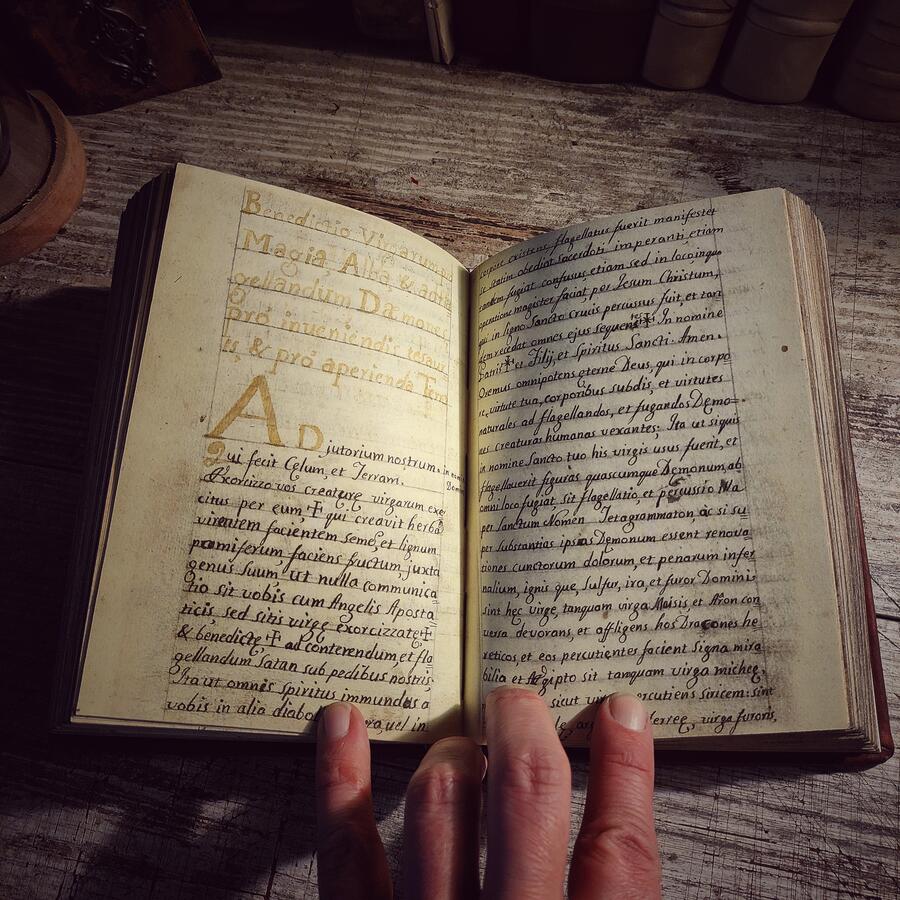 Benedictio Virgarum
Magia, Alba, & ante
gellandum Dæmones
pro inveniendis tesaur
is & pro aperienda Terra
AD jutorium nostrum in
Qui fecit Celum, et Terram.
Exorcizo vos creature virgarum exor
citus per eum, ✠ qui creavit herbã
virentem facientem semẽ, et lignum
pomiferum faciens fructum, juxta
genus suum, ut nulla communica
tio sit vobis cum Angelis Aposta
ticis, sed sitis virge exorcizzate ✠
& benedicte ✠ ad conterendum, et fla
gellandum Satan sub pedibus nostris,
Ita ut omnis spiritus immundus a
vobis in alia vel in
corpore existens, flagellatus fuerit manifestet
se statim obediat Sacerdoti imperanti etiam
tandem fugiat confusus etiam sed in locoinque
operatione magister faciat, per Jesum Christum,
qui in ligno Sancto crucis percussus fuit, et tan
dem recedat omnes ejus sequens ✠ In nomine
Patris ✠ et Filij, et Spiritus Sancti. Amen.
Oremus omnipotens eterne Deus, qui in corpo
re, virtute tua, corporibus subdis, et virtutes
naturales ad flagellandos, et fugandos Demo=
nes creaturas humanas vexantes; Ita ut siquis
in nomine Sancto tuo his virgis usus fuerit, et
flagellaverit figuras quascumque Demonum, ab
omni loco fugiat, sit flagellatio, et percussio
per Sanctum Nomen Tetagrammaton, ac si su
per substantias ipsas Demonum essent renova
tiones cunctorum dolorum, et penarum infer
nalium, ignis que, Sulfur, ira, et furor Domini
sint hec virge, tanquam virga Moisis, et Aron con
versa devorans, et affligens hos Dracones he
reticos, et eos percutientes facient Signa mira
bilia et Ægipto sit tanquam virga micheę,
sicut percutiens siricem: sint
ferreę, virga furoris,